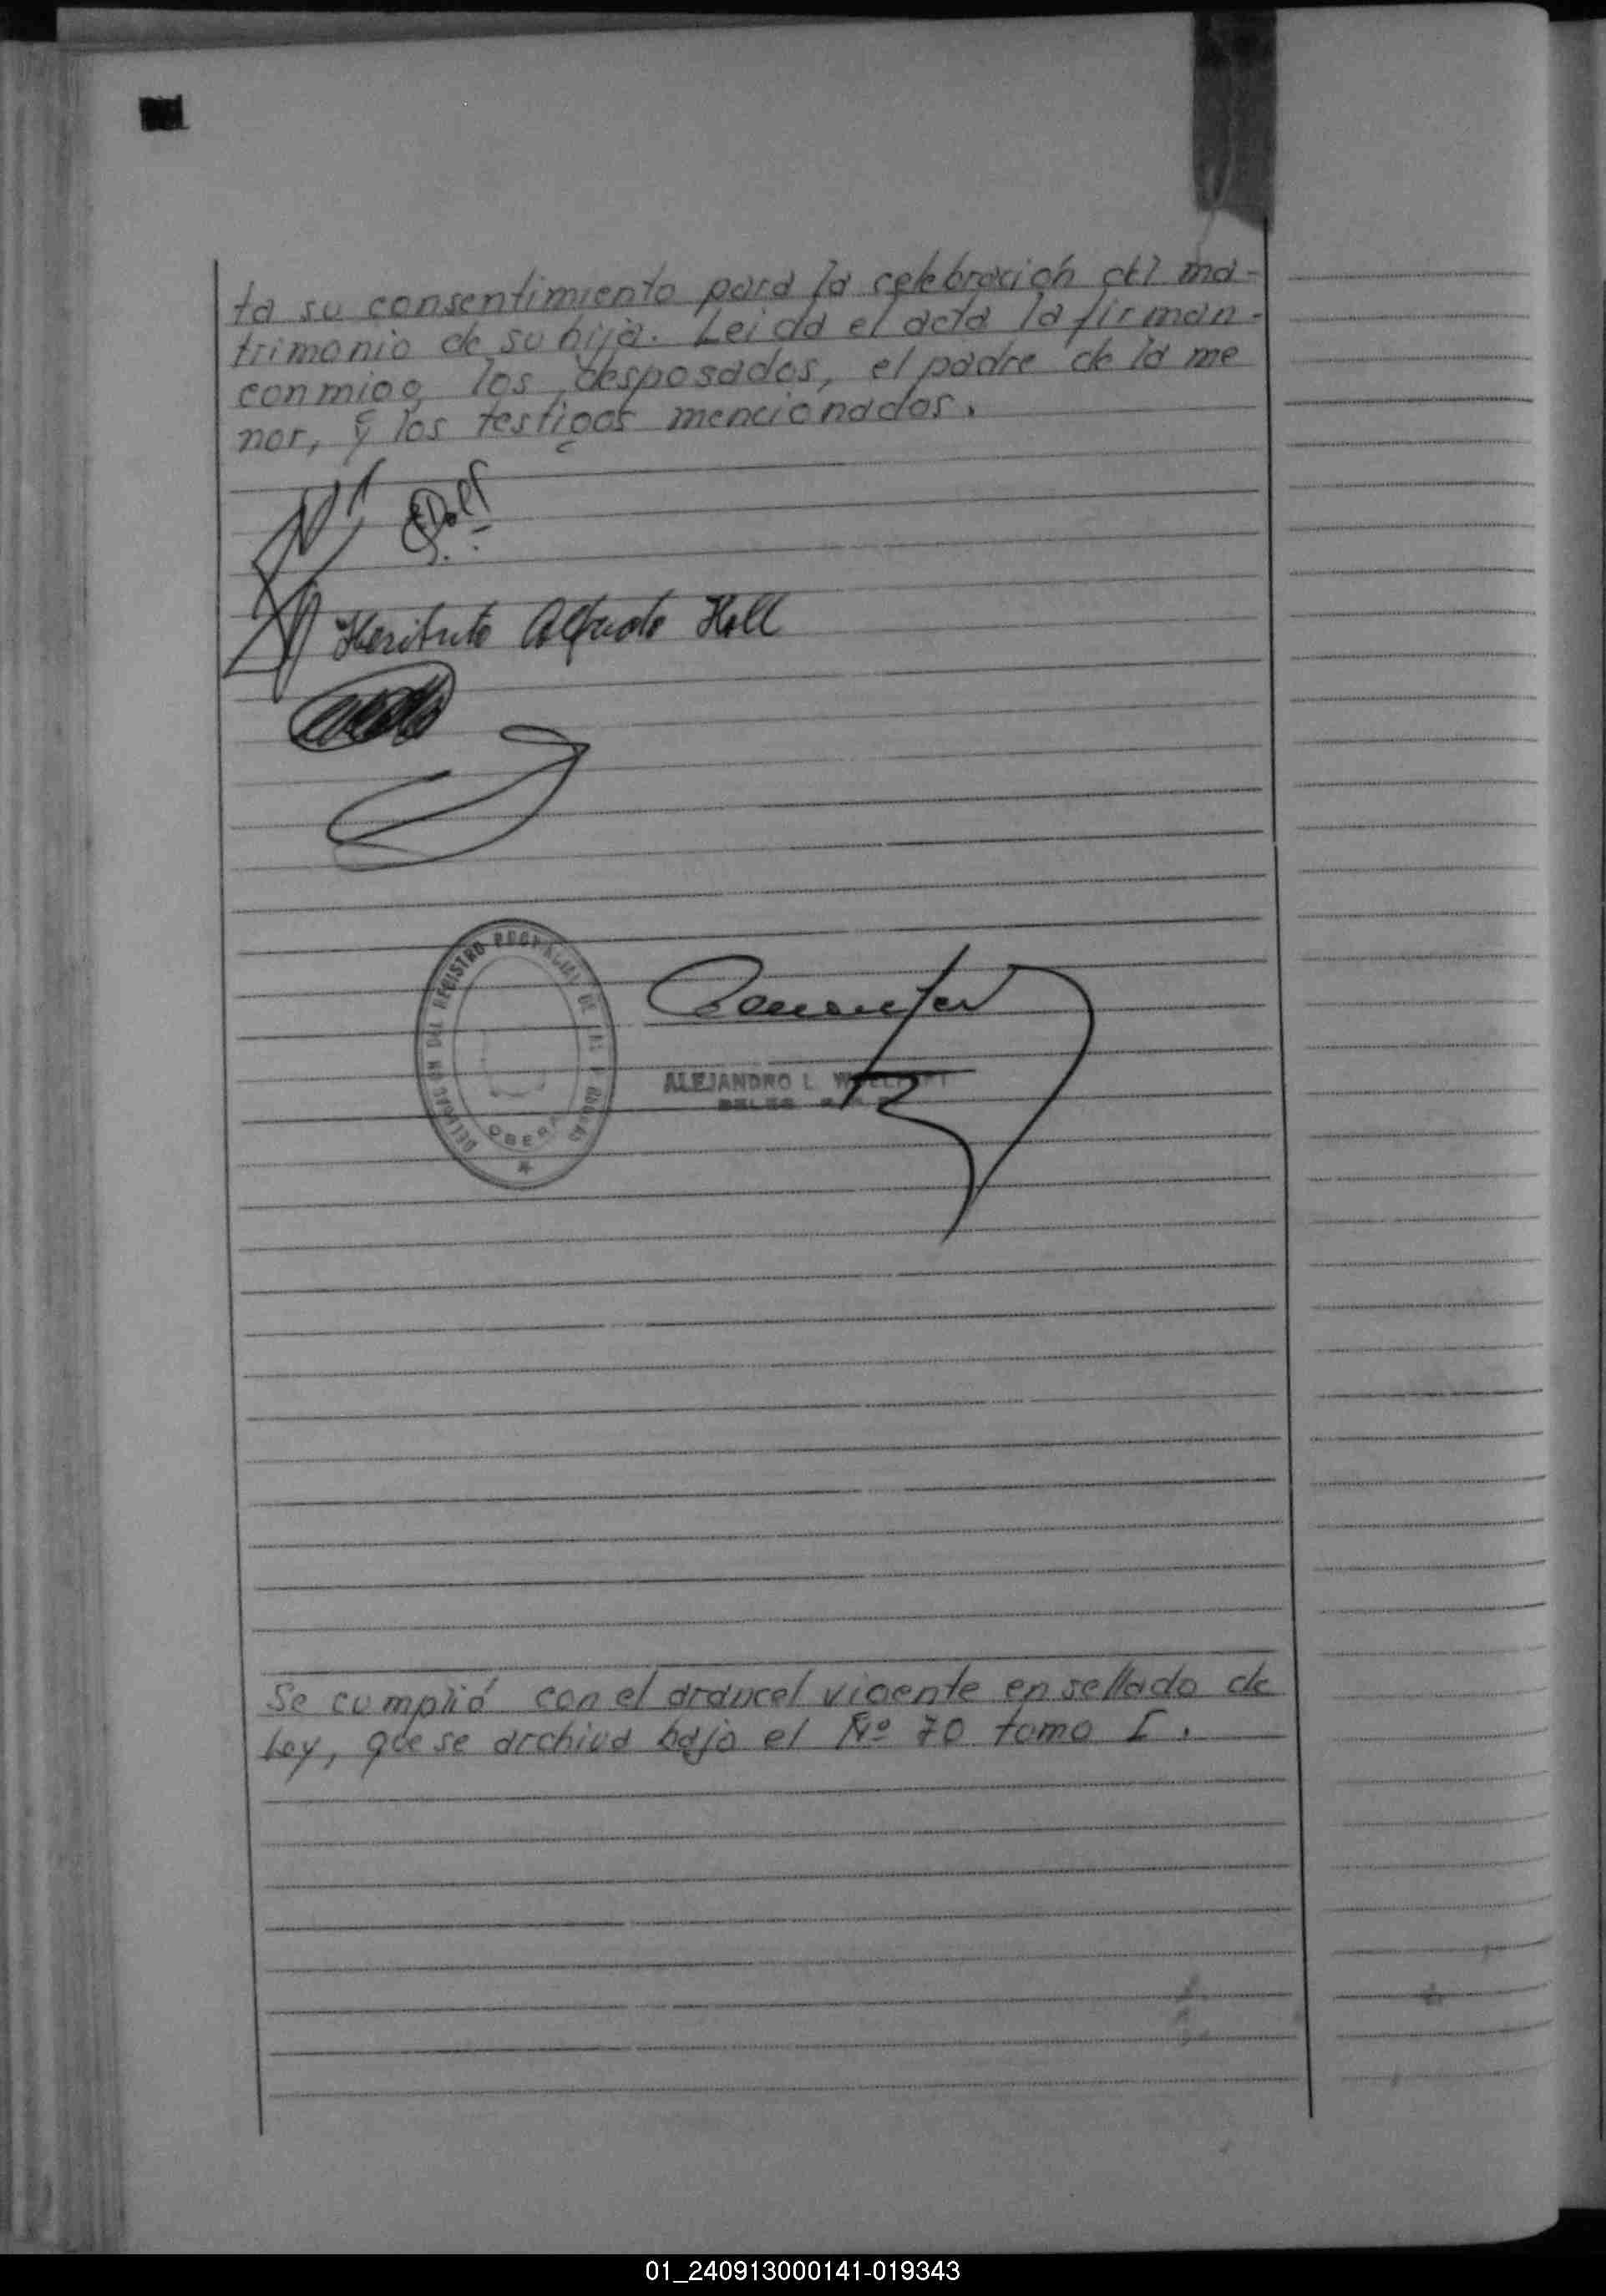 ta su consentimiento para la celebración del ma-
trimonio de su hija. Leida el acta la firman-
conmigo los desposados, el padre de la me
nor, y los testigos mencionados.
Alfredo Holl
DELEGACION DEL REGISTRO PROVINCIAL DE LAS
OBERA
ALEJANDRO L.
Se cumplió con el arancel vigente en sellado de
Ley, que se archiva bajo el Nº 70 tomo I.
01_240913000141-019343